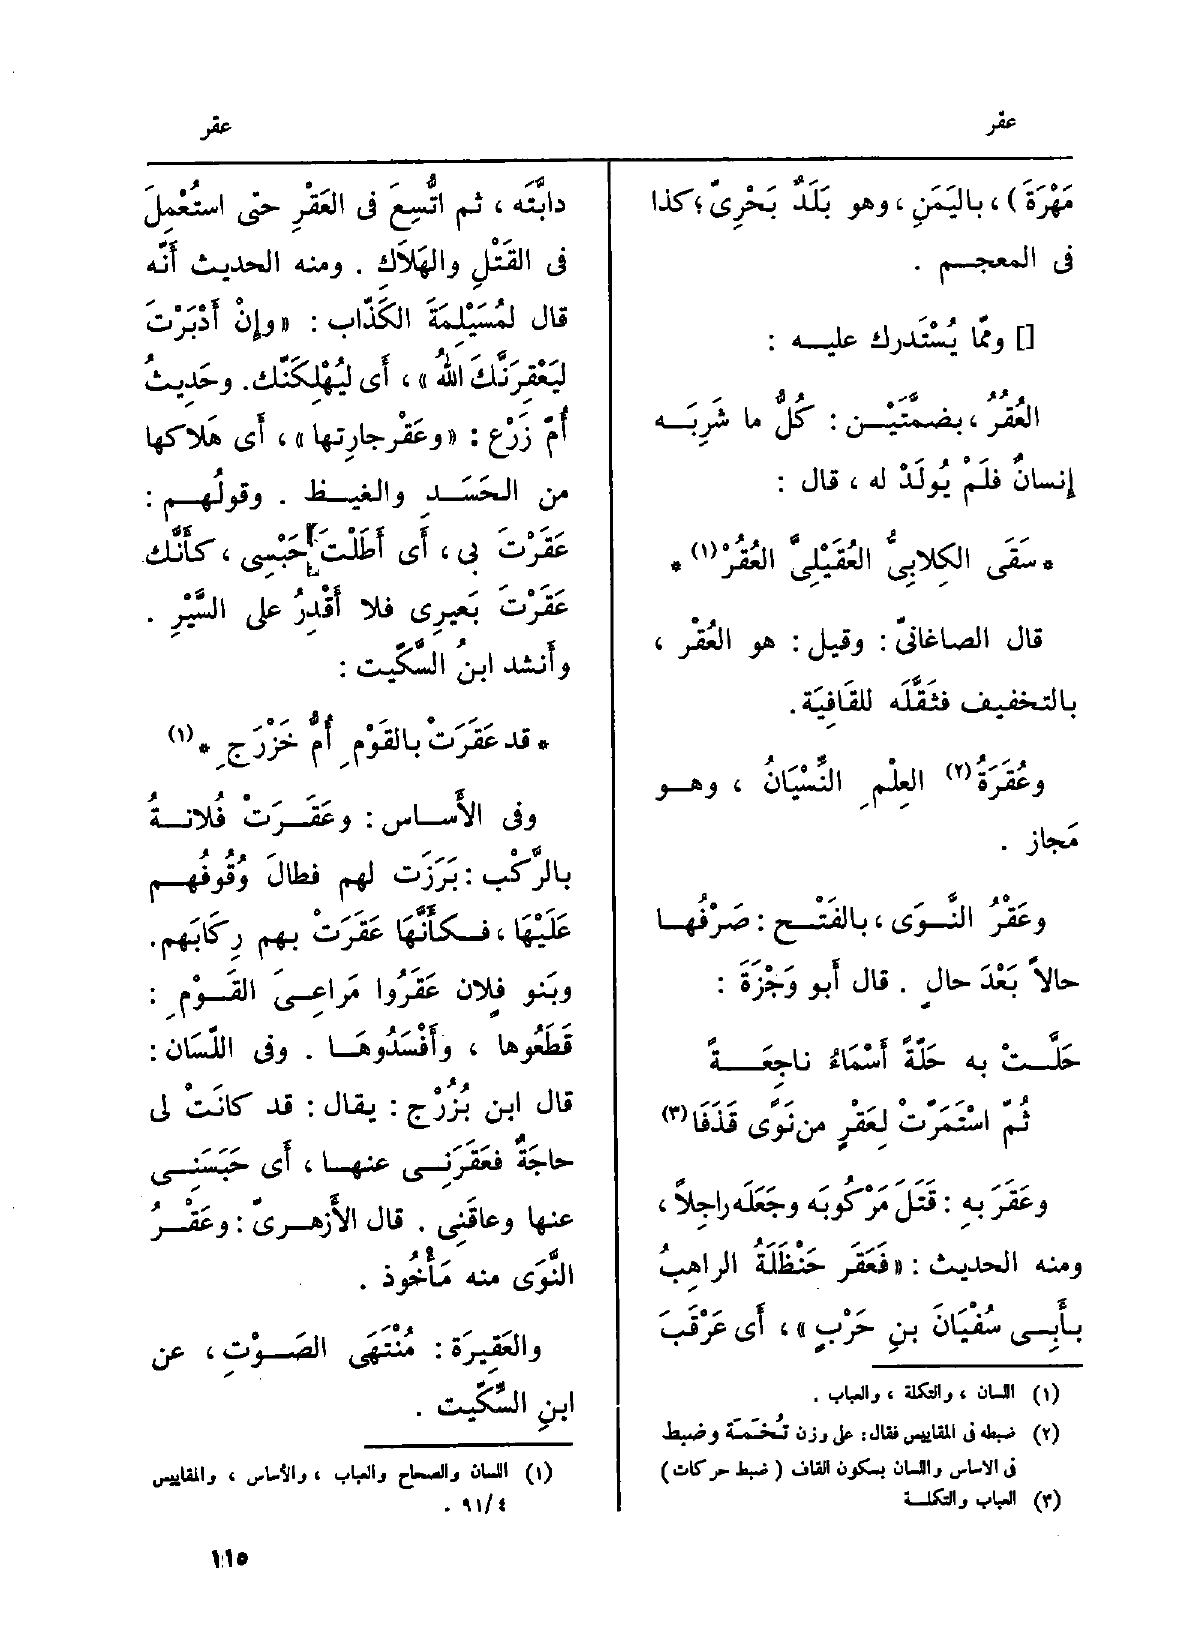 عقر
عقر
مَهْرَةَ) ، باليَمَنِ ، وهو بَلَدٌ بَحْرِىّ ؛ كذا
فى المعجم .
[] وممّا يُسْتَدرك عليه :
العُقُرُ ، بضمتَّيْن : كُلُّ ما شَرِبَه
إنسانٌ فلَمْ يُولَدْ له ، قال :
* سَقَى الكِلابِىُّ العُقَيْلِىَّ العُقُرْ (١) *
قال الصاغانىّ : وقيل : هو العُقْر ،
بالتخفيف فثقَّلَه للقَافِيَة .
وعُقَرَةُ (٢) العِلْمِ النِّسْيَانُ ، وهو
مَجاز .
وعَقْرُ النَّوَى ، بالفَتْح : صَرْفُها
حالاً بَعْدَ حالٍ . قال أبو وَجْزَةَ :
حَلَّتْ به حَلَّةً أسْمَاءُ ناجِعَةً
ثُمّ استَمَرّتْ لِعَقْرٍ من نَوًى قَذَفَا (٣)
وعَقَرَ بهِ : قَتَلَ مَرْكُوبَه وجَعَلَه راجِلاً ،
ومنه الحديث : «فَعَقَر حَنْظَلَةُ الراهِبُ
بأَبِى سُفْيَانَ بنِ حَرْبٍ » ، أى عَرْقَبَ
(١) اللسان ، والتكلة ، والعباب .
(٢) ضبطه فى المقاييس فقال : على وزن تُخَمَة وضبط
فى الاساس واللسان بسكون القاف ( ضبط حركات )
(٣) العباب والتكلة
دابَّتَه ، ثم اتُّسِعَ فى العَقْرِ حتى استُعْمِلَ
فى القَتْلِ والهَلاَكِ . ومنه الحديث أَنّه
قال لمُسَيْلِمَةَ الكَذّاب : «وإنْ أَدْبَرْتَ
لَيَعْقِرَنَّكَ اللهُ » ، أَى ليُهْلِكَنّك . وحَدِيثُ
أُمّ زَرْع : «وعَقْر جارِتها » ، أَى هَلاكها
من الحَسَدِ والغيظ . وقولُهم :
عَقَرْتَ بى ، أَى أَطَلْتَ حَبْسِى ، كأَنَّك
عَقَرْتَ بَعيرِى فلا أَقْدِرُ على السَّيْرِ .
وأَنشد ابنُ السِّكِّيت :
* قد عَقَرَتْ بالقَوْمِ أُمُّ خَزْرَجِ * (١)
وفى الأَساس : وعَقَرَتْ فُلانةُ
بالرَّكْب : بَرَزَت لهم فطالَ وُقُوفُهم
عَلَيْهَا ، فكأَنَّها عَقَرَتْ بهم رِكَابَهم .
وبَنو فلان عَقَرُوا مَراعِىَ القَوْمِ :
قَطَعُوها ، وأَفْسَدُوهَا . وفى اللّسَان :
قال ابن بُزُرْج : يقال : قد كانَتْ لى
حاجَةٌ فعَقَرَنِى عنها ، أَى حَبَسَنِى
عنها وعاقَنِى . قال الأَزهرىّ : وعَقْرُ
النَّوَى منه مَأْخُوذ .
والعَقِيرَة : مُنْتَهَى الصَوْتِ ، عن
ابنِ السِّكِّيت .
(١) اللسان والصحاح والعباب ، والأساس ، والمقاييس
٤/ ٩١ .
١١٥